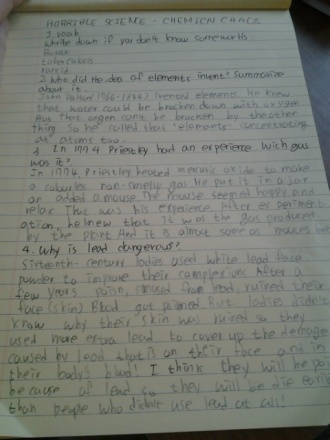 HORRIBLE SCIENCE - CHEMICAL CHAOS
1. vocab
write down if you don't know some words
Borax
tubercalosis
2. who did the idea of elements invent? Summarize
about it.
John Dalton (1766-1844) invented elements. He knew
that water could be brocken down with oxygen
But that oxgen cant be brocken by the other
thing So he called that "elements" concentrating
at atoms too.
3. In 1774 Priestley had an experience with gas
was it?
In 1774, Priestley heated mercuric oxide to make
a colourles non-smelly gas He put it in a jar
an added a mouse. The mouse seemed happy and
relax That was his experience. After experiment-
ation, he knew that it was the gas produced
by the plant And it is almost same as
4. Why is lead dangerous?
Sixteenth-century ladies used white lead face
powder to improve their complexion. After a
few years, poison, caused from lead, ruined their
face (skin) Blood got poisoned But ladies didn't
know why their skin was ruined so they
used more extra lead to cover up the demage
caused by lead that is on their face and in
their body's blood! I think they will be
because of lead so they will be die earlier
than people who didn't use lead at all!